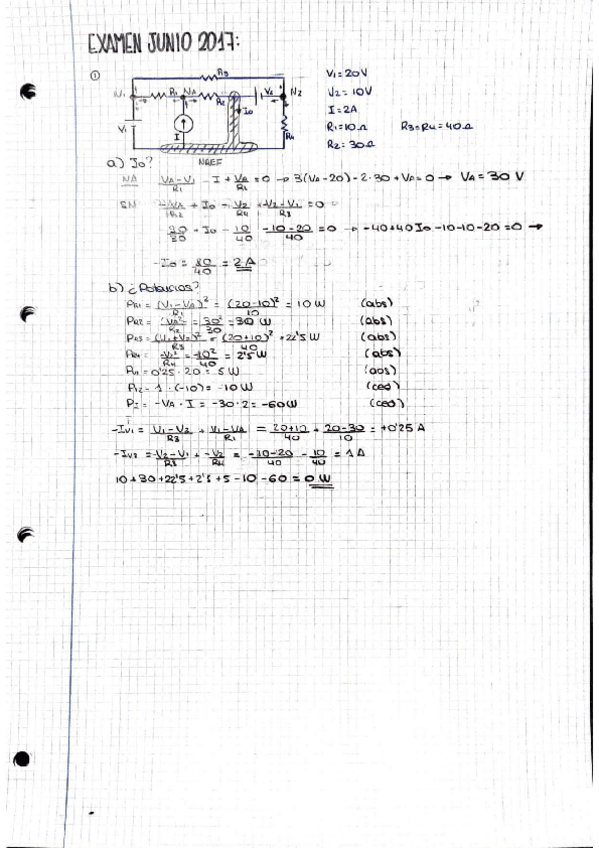 EXAMEN JUNIO 2017:
①
R3
N1 R1 NA R2 V2 N2
V1 I Io R4
NREF
V1 = 20V
V2 = 10V
I = 2A
R1 = 10 Ω R3 = R4 = 40 Ω
R2 = 30 Ω
a) Io?
NA (VA - V1)/R1 - I + VA/R1 = 0 → 3(VA - 20) - 2·30 + VA = 0 → VA = 30 V
-VA/R2 + Io - V2/R4 + (-V2 - V1)/R3 = 0
Io - 10/40 (-10 - 20)/40 = 0 → -40 + 40 Io - 10 - 10 - 20 = 0 →
Io = 80/40 = 2 A
b) ¿Potencias?
PR1 = (V1 - VA)²/R1 = (20 - 10)²/10 = 10 W (abs)
PR2 = VA²/R2 = 30²/30 = 30 W (abs)
PR3 = (V1 + V2)²/R3 = (20 + 10)²/40 = 22'5 W (abs)
PR4 = V2²/R4 = 10²/40 = 2'5 W (abs)
PV1 = 0'25 · 20 = 5 W (abs)
PV2 = 1 · (-10) = -10 W (ced)
PI = -VA · I = -30 · 2 = -60 W (ced)
-IV1 = (V1 - V2)/R3 + (V1 - VA)/R1 = (20 + 10)/40 + (20 - 30)/10 = +0'25 A
-IV2 = (-V2 - V1)/R3 + -V2/R4 = (-10 - 20)/40 - 10/40 = 1 A
10 + 30 + 22'5 + 2'5 + 5 - 10 - 60 = 0 W